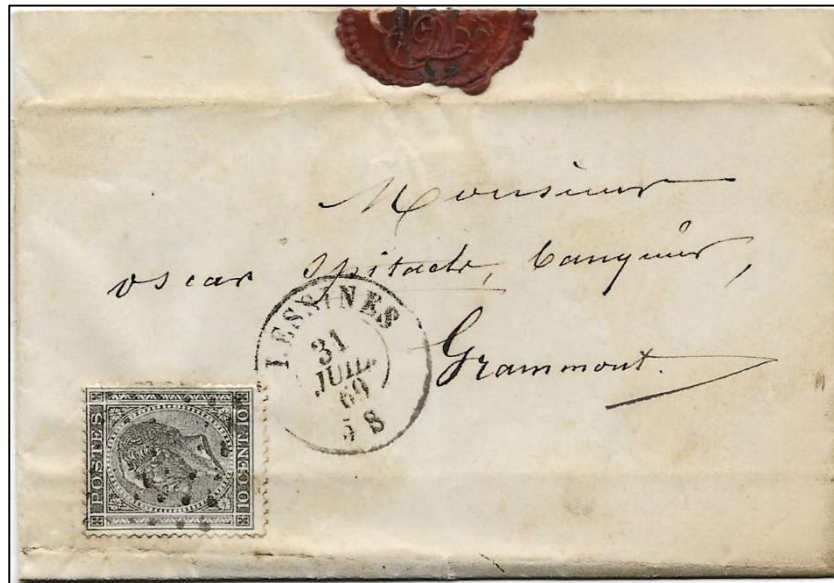 Monsieur
oscar Spitaels, banquier,
Grammont.
LESSINES
31
JUIL.
69
5 S
POSTES
10 CENT. 10